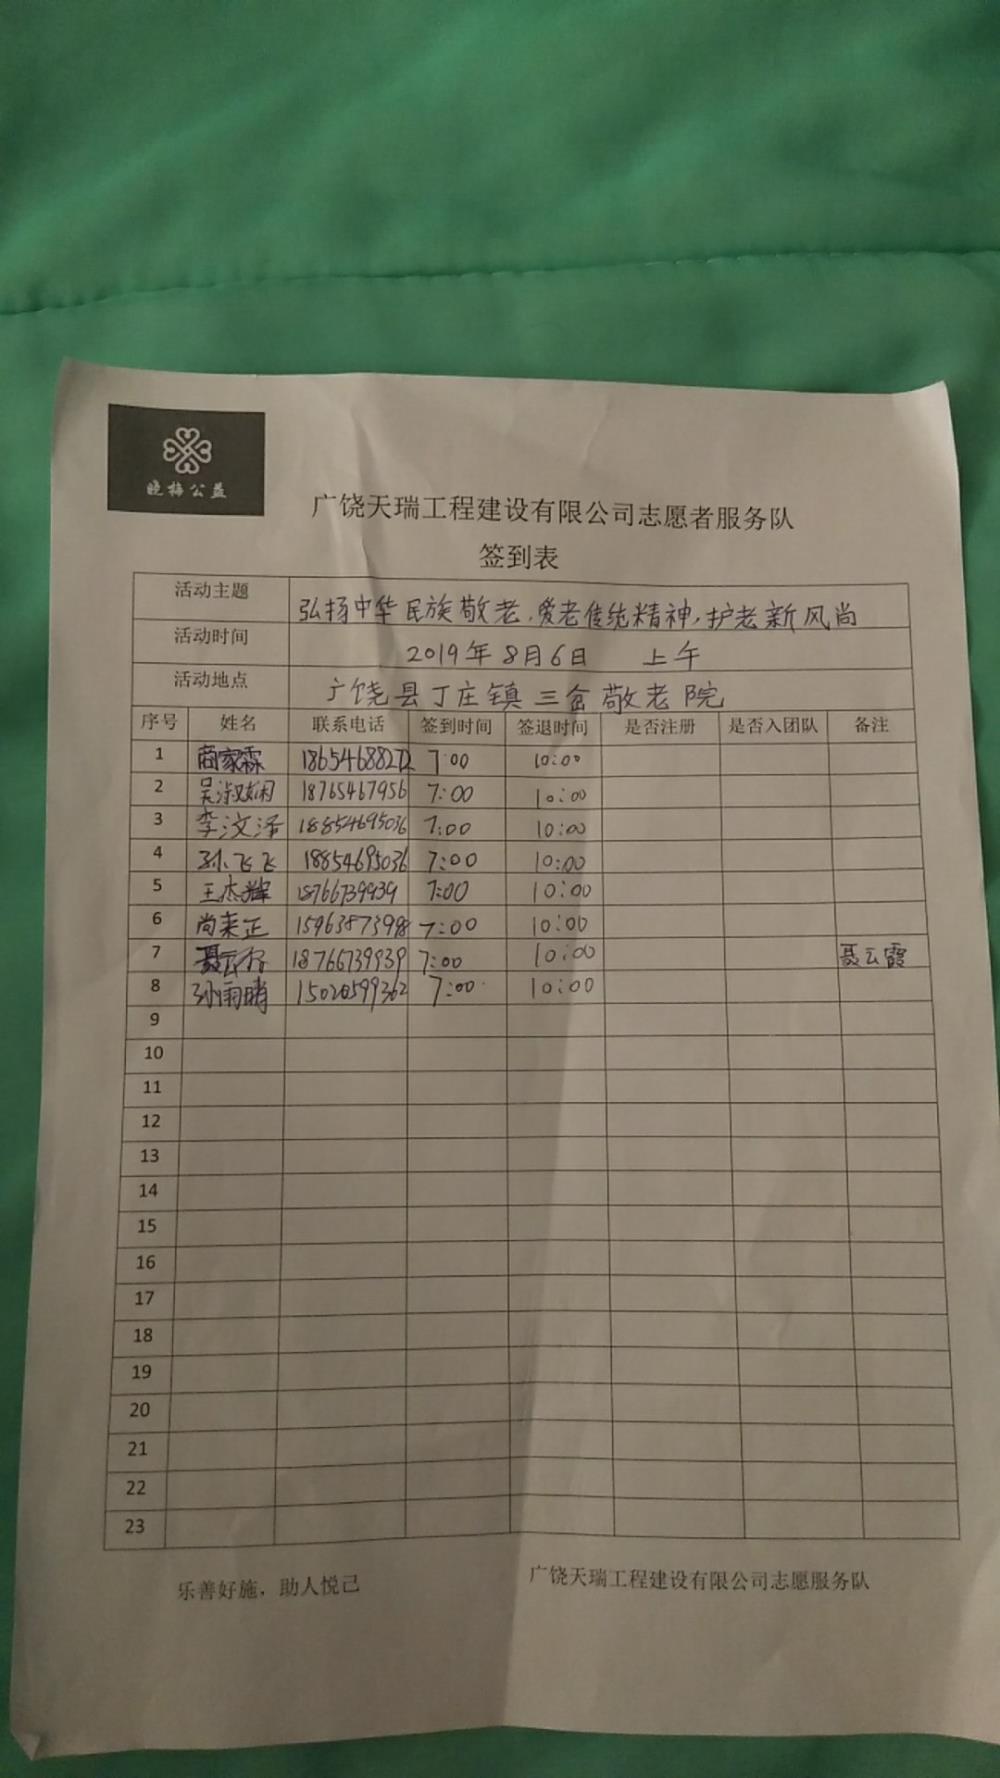 晓梅公益
广饶天瑞工程建设有限公司志愿者服务队
签到表
活动主题 弘扬中华民族敬老、爱老传统精神，护老新风尚
活动时间 2019年8月6日 上午
活动地点 广饶县丁庄镇三岔敬老院
序号 姓名 联系电话 签到时间 签退时间 是否注册 是否入团队 备注
1 商家霖 7:00 10:00
2 吴淑娴 18765467956 7:00 10:00
3 李汶泽 18854695036 7:00 10:00
4 孙飞飞 18854695036 7:00 10:00
5 王杰辉 18766739939 7:00 10:00
6 尚来正 7:00 10:00
7 18766739939 7:00 10:00 聂云霞
8 孙雨晴 15020599362 7:00 10:00
9
10
11
12
13
14
15
16
17
18
19
20
21
22
23
乐善好施，助人悦己 广饶天瑞工程建设有限公司志愿服务队